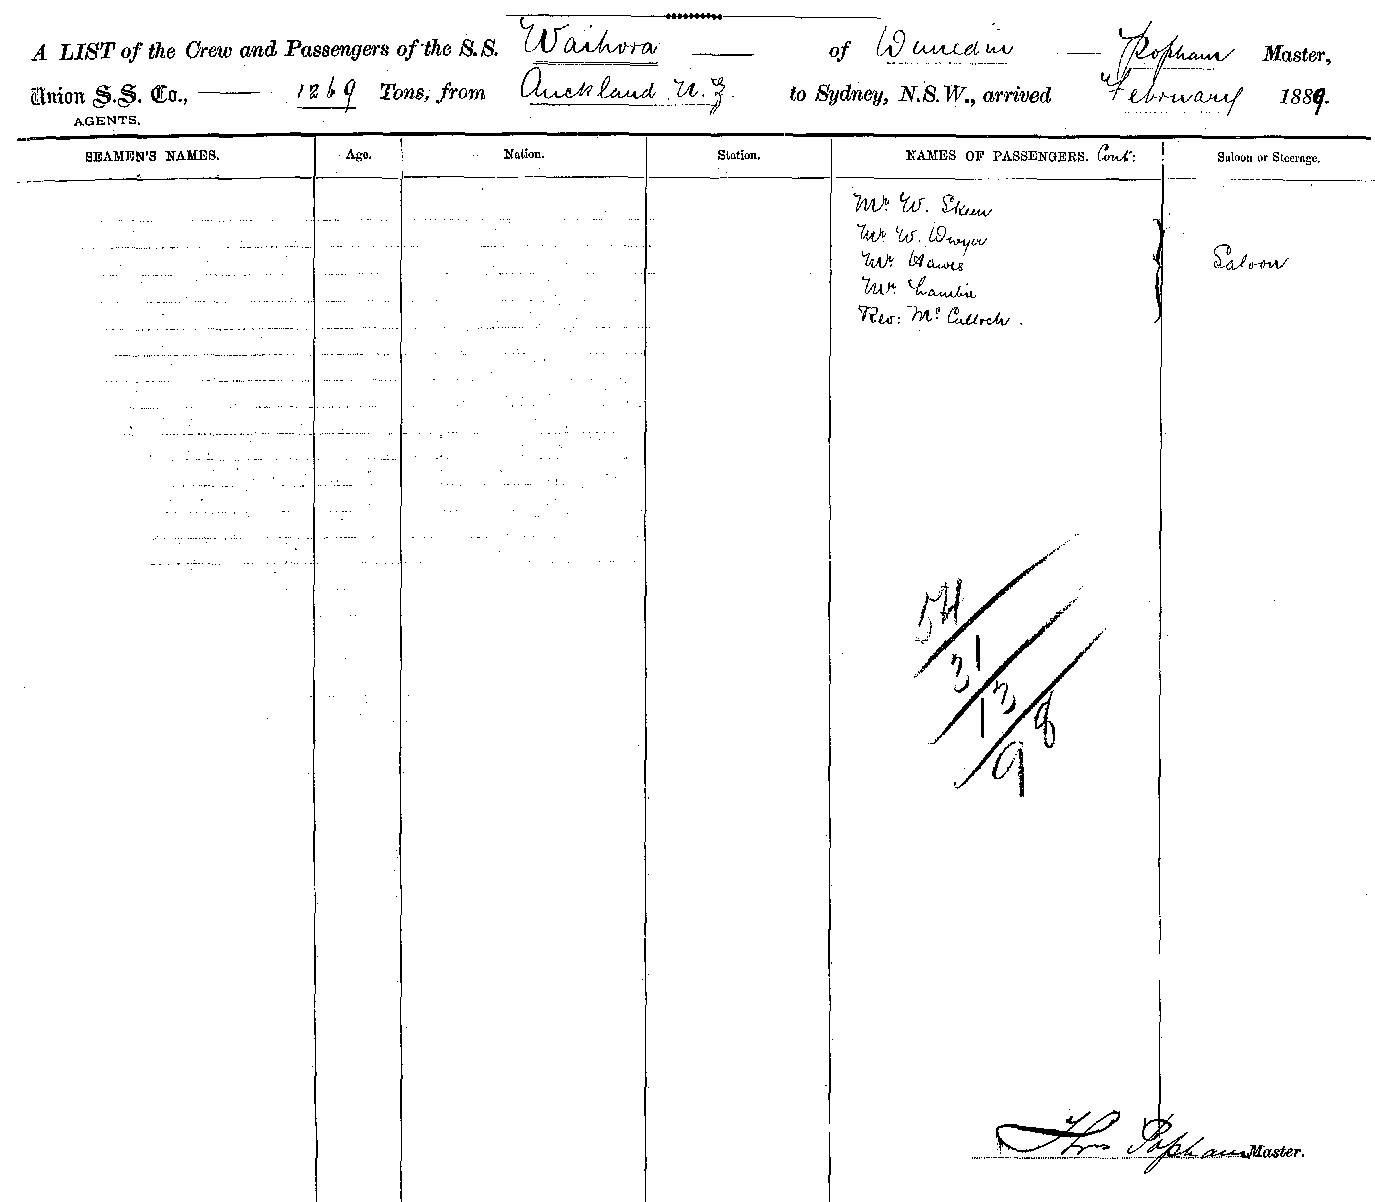 A LIST of the Crew and Passengers of the S.S. Waihora of Dunedin Popham Master,
Union S.S. Co., 1269 Tons, from Auckland N.Z. to Sydney, N.S.W., arrived February 1889.
AGENTS.
SEAMEN'S NAMES. Age. Nation. Station. NAMES OF PASSENGERS. Cont: Saloon or Steerage.
Mr W. Skeen
Mr W. Dwyer
Mr Hawes Saloon
Mr Lambie
Rev: Mc Culloch.
54
31
13
98
Thos Popham Master.